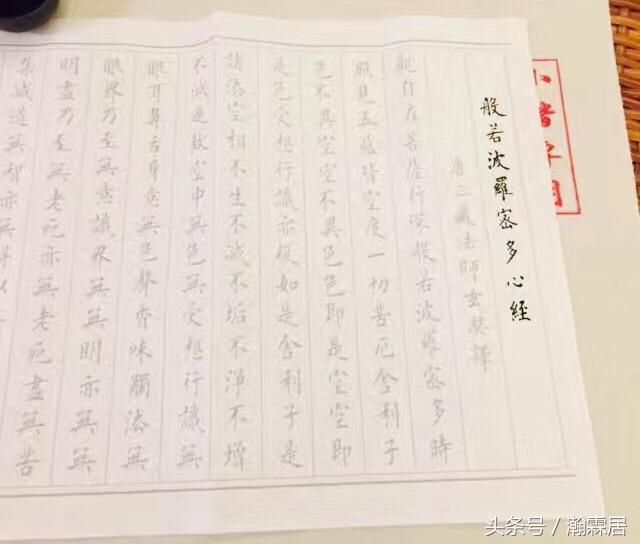 小楷
般若波羅密多心經
唐三藏法師玄奘譯
觀自在菩薩行深般若波羅密多時
照見五蘊皆空度一切苦厄舍利子
色不異空空不異色色即是空空即
是色受想行識亦復如是舍利子是
諸法空相不生不滅不垢不淨不增
不減是故空中無色無受想行識無
眼耳鼻舌身意無色聲香味觸法無
眼界乃至無意識界無無明亦無無
明盡乃至無老死亦無老死盡無苦
集滅道無智亦無得以
头条号 / 瀚霖居